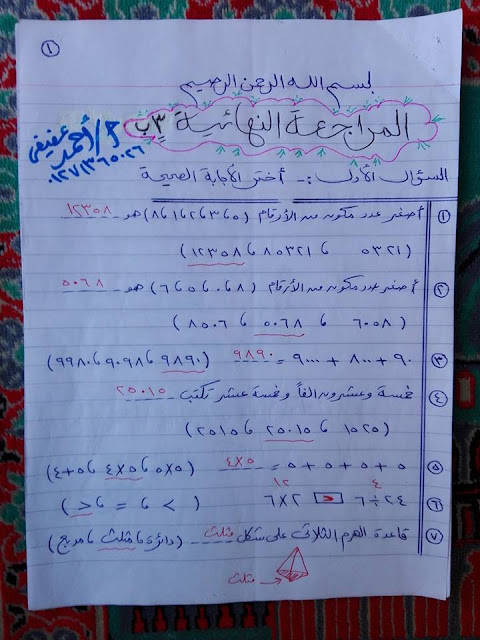 ١
بسم الله الرحمن الرحيم
المراجعة النهائية ٣ب
أ/ أحمد عفيفي
٠١٢٧١٣٦٥٠٢٦
السؤال الأول :- أختر الأجابة الصحيحة
١ أصغر عدد مكون من الأرقام (٥ ، ٣ ، ٢ ، ١ ، ٨) هو ١٢٣٥٨
(٥٣٢١ ، ٨٥٣٢١ ، ١٢٣٥٨)
٢ أصغر عدد مكون من الأرقام (٨ ، ٠ ، ٥ ، ٦) هو ٥٠٦٨
(٦٠٥٨ ، ٥٠٦٨ ، ٨٥٠٦)
٣ ٩٠ + ٨٠٠ + ٩٠٠٠ = ٩٨٩٠ (٩٨٩٠ ، ٩٠٩٨ ، ٩٩٨٠)
٤ خمسة وعشرون الفاً وخمسة عشر تكتب ٢٥٠١٥
(١٥٢٥ ، ٢٥٠١٥ ، ٢٥١٥)
٥ ٥ + ٥ + ٥ + ٥ = ٤×٥ (٥×٥ ، ٤×٥ ، ٤+٥)
٤ ١٢
٦ ٢٤ ÷ ٦ < ٢×٦ (< ، = ، >)
٧ قاعدة الهرم الثلاثى على شكل مثلث (دائرة ، مثلث ، مربع)
مثلث